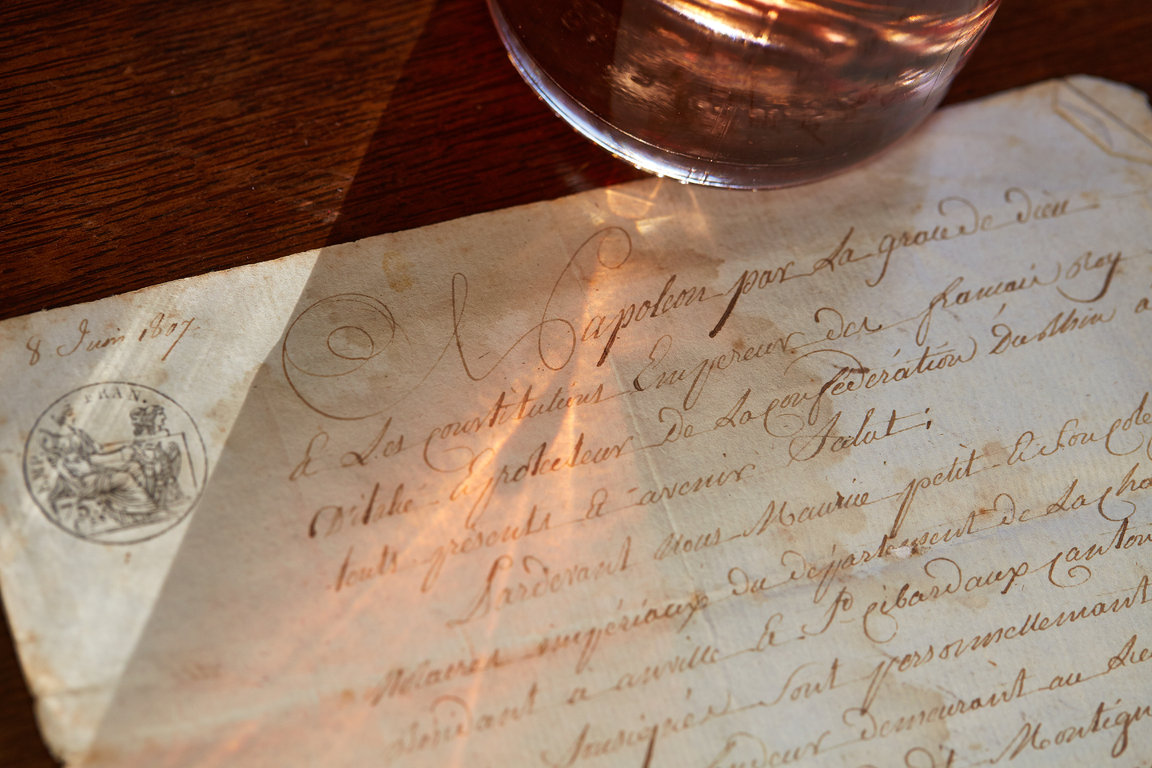 8 Juin 1807
FRAN.
Napoleon par La grace de dieu
& Les constitutions Empereur des francais Roy
D'italie & protecteur de La confédération Du Rhin
touts présents & avenir Salut;
Pardevant nous Maurice petit & Son
impériaux du département de La
a anville & St Cibardaux canton
Sont personnellemant
demeurant au
Montign